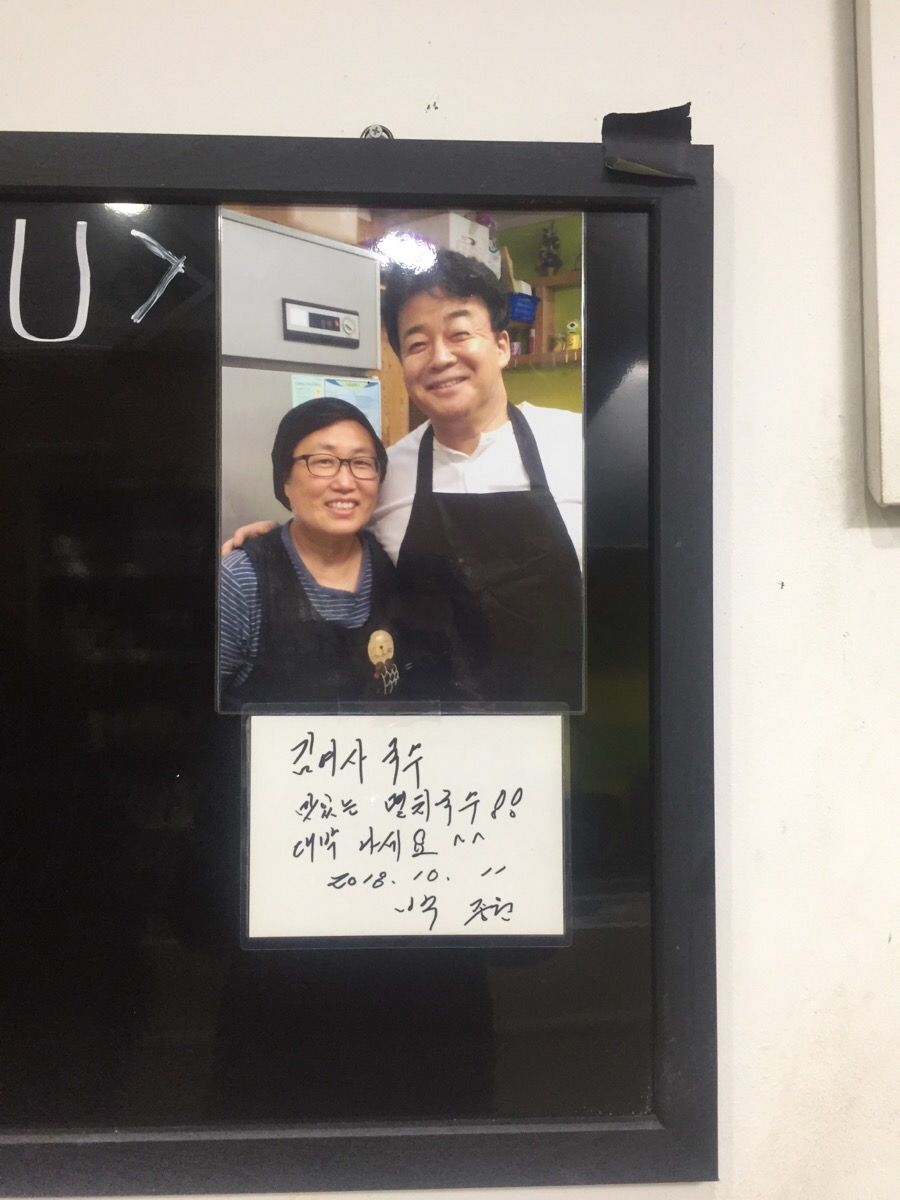 U>
김여사 국수
맛있는 멸치국수!!
대박 나세요 ^^
2018. 10. 11
백종원